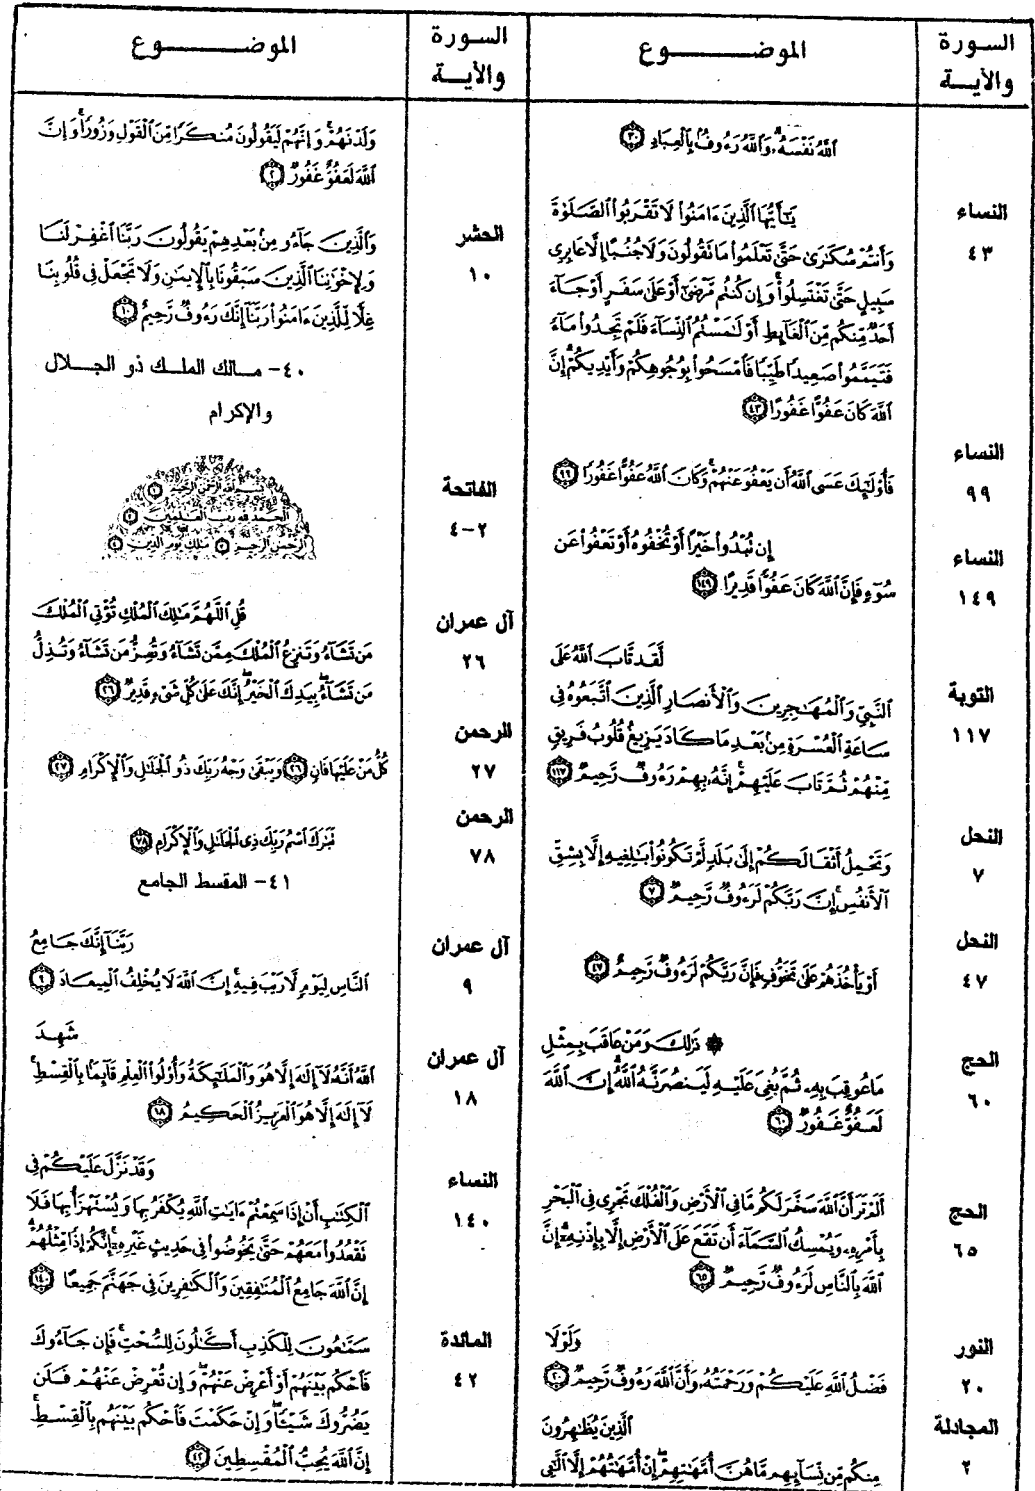 السورة
والآية
الموضـــــــوع
ٱللَّهُ نَفْسَهُۥ وَٱللَّهُ رَءُوفُۢ بِٱلْعِبَادِ ۝٣٠
النساء
٤٣
يَٰٓأَيُّهَا ٱلَّذِينَ ءَامَنُوا۟ لَا تَقْرَبُوا۟ ٱلصَّلَوٰةَ
وَأَنتُمْ سُكَٰرَىٰ حَتَّىٰ تَعْلَمُوا۟ مَا تَقُولُونَ وَلَا جُنُبًا إِلَّا عَابِرِى
سَبِيلٍ حَتَّىٰ تَغْتَسِلُوا۟ وَإِن كُنتُم مَّرْضَىٰٓ أَوْ عَلَىٰ سَفَرٍ أَوْ جَآءَ
أَحَدٌ مِّنكُم مِّنَ ٱلْغَآئِطِ أَوْ لَٰمَسْتُمُ ٱلنِّسَآءَ فَلَمْ تَجِدُوا۟ مَآءً
فَتَيَمَّمُوا۟ صَعِيدًا طَيِّبًا فَٱمْسَحُوا۟ بِوُجُوهِكُمْ وَأَيْدِيكُمْ إِنَّ
ٱللَّهَ كَانَ عَفُوًّا غَفُورًا ۝٤٣
النساء
٩٩
فَأُو۟لَٰٓئِكَ عَسَى ٱللَّهُ أَن يَعْفُوَ عَنْهُمْ وَكَانَ ٱللَّهُ عَفُوًّا غَفُورًا ۝٩٩
النساء
١٤٩
إِن تُبْدُوا۟ خَيْرًا أَوْ تُخْفُوهُ أَوْ تَعْفُوا۟ عَن
سُوٓءٍ فَإِنَّ ٱللَّهَ كَانَ عَفُوًّا قَدِيرًا ۝١٤٩
التوبة
١١٧
لَّقَد تَّابَ ٱللَّهُ عَلَى
ٱلنَّبِىِّ وَٱلْمُهَٰجِرِينَ وَٱلْأَنصَارِ ٱلَّذِينَ ٱتَّبَعُوهُ فِى
سَاعَةِ ٱلْعُسْرَةِ مِنۢ بَعْدِ مَا كَادَ يَزِيغُ قُلُوبُ فَرِيقٍ
مِّنْهُمْ ثُمَّ تَابَ عَلَيْهِمْ إِنَّهُۥ بِهِمْ رَءُوفٌ رَّحِيمٌ ۝١١٧
النحل
٧
وَتَحْمِلُ أَثْقَالَكُمْ إِلَىٰ بَلَدٍ لَّمْ تَكُونُوا۟ بَٰلِغِيهِ إِلَّا بِشِقِّ
ٱلْأَنفُسِ إِنَّ رَبَّكُمْ لَرَءُوفٌ رَّحِيمٌ ۝٧
النحل
٤٧
أَوْ يَأْخُذَهُمْ عَلَىٰ تَخَوُّفٍ فَإِنَّ رَبَّكُمْ لَرَءُوفٌ رَّحِيمٌ ۝٤٧
الحج
٦٠
۞ ذَٰلِكَ وَمَنْ عَاقَبَ بِمِثْلِ
مَا عُوقِبَ بِهِۦ ثُمَّ بُغِىَ عَلَيْهِ لَيَنصُرَنَّهُ ٱللَّهُ إِنَّ ٱللَّهَ
لَعَفُوٌّ غَفُورٌ ۝٦٠
الحج
٦٥
أَلَمْ تَرَ أَنَّ ٱللَّهَ سَخَّرَ لَكُم مَّا فِى ٱلْأَرْضِ وَٱلْفُلْكَ تَجْرِى فِى ٱلْبَحْرِ
بِأَمْرِهِۦ وَيُمْسِكُ ٱلسَّمَآءَ أَن تَقَعَ عَلَى ٱلْأَرْضِ إِلَّا بِإِذْنِهِۦٓ إِنَّ
ٱللَّهَ بِٱلنَّاسِ لَرَءُوفٌ رَّحِيمٌ ۝٦٥
النور
٢٠
وَلَوْلَا
فَضْلُ ٱللَّهِ عَلَيْكُمْ وَرَحْمَتُهُۥ وَأَنَّ ٱللَّهَ رَءُوفٌ رَّحِيمٌ ۝٢٠
المجادلة
٢
ٱلَّذِينَ يُظَٰهِرُونَ
مِنكُم مِّن نِّسَآئِهِم مَّا هُنَّ أُمَّهَٰتِهِمْ إِنْ أُمَّهَٰتُهُمْ إِلَّا ٱلَّٰٓـِٔى
السورة
والآية
الموضـــــــوع
وَلَدْنَهُمْ وَإِنَّهُمْ لَيَقُولُونَ مُنكَرًا مِّنَ ٱلْقَوْلِ وَزُورًا وَإِنَّ
ٱللَّهَ لَعَفُوٌّ غَفُورٌ ۝٢
الحشر
١٠
وَٱلَّذِينَ جَآءُو مِنۢ بَعْدِهِمْ يَقُولُونَ رَبَّنَا ٱغْفِرْ لَنَا
وَلِإِخْوَٰنِنَا ٱلَّذِينَ سَبَقُونَا بِٱلْإِيمَٰنِ وَلَا تَجْعَلْ فِى قُلُوبِنَا
غِلًّا لِّلَّذِينَ ءَامَنُوا۟ رَبَّنَآ إِنَّكَ رَءُوفٌ رَّحِيمٌ ۝١٠
٤٠- مـالك الملـك ذو الجـلال
والإكرام
الفاتحة
٢-٤
بِسْمِ ٱللَّهِ ٱلرَّحْمَٰنِ ٱلرَّحِيمِ ۝١
ٱلْحَمْدُ لِلَّهِ رَبِّ ٱلْعَٰلَمِينَ ۝٢
ٱلرَّحْمَٰنِ ٱلرَّحِيمِ ۝٣ مَٰلِكِ يَوْمِ ٱلدِّينِ ۝٤
آل عمران
٢٦
قُلِ ٱللَّهُمَّ مَٰلِكَ ٱلْمُلْكِ تُؤْتِى ٱلْمُلْكَ
مَن تَشَآءُ وَتَنزِعُ ٱلْمُلْكَ مِمَّن تَشَآءُ وَتُعِزُّ مَن تَشَآءُ وَتُذِلُّ
مَن تَشَآءُ بِيَدِكَ ٱلْخَيْرُ إِنَّكَ عَلَىٰ كُلِّ شَىْءٍ قَدِيرٌ ۝٢٦
الرحمن
٢٧
كُلُّ مَنْ عَلَيْهَا فَانٍ ۝٢٦ وَيَبْقَىٰ وَجْهُ رَبِّكَ ذُو ٱلْجَلَٰلِ وَٱلْإِكْرَامِ ۝٢٧
الرحمن
٧٨
تَبَٰرَكَ ٱسْمُ رَبِّكَ ذِى ٱلْجَلَٰلِ وَٱلْإِكْرَامِ ۝٧٨
٤١- المقسط الجامع
آل عمران
٩
رَبَّنَآ إِنَّكَ جَامِعُ
ٱلنَّاسِ لِيَوْمٍ لَّا رَيْبَ فِيهِ إِنَّ ٱللَّهَ لَا يُخْلِفُ ٱلْمِيعَادَ ۝٩
آل عمران
١٨
شَهِدَ
ٱللَّهُ أَنَّهُۥ لَآ إِلَٰهَ إِلَّا هُوَ وَٱلْمَلَٰٓئِكَةُ وَأُو۟لُوا۟ ٱلْعِلْمِ قَآئِمًۢا بِٱلْقِسْطِ
لَآ إِلَٰهَ إِلَّا هُوَ ٱلْعَزِيزُ ٱلْحَكِيمُ ۝١٨
النساء
١٤٠
وَقَدْ نَزَّلَ عَلَيْكُمْ فِى
ٱلْكِتَٰبِ أَنْ إِذَا سَمِعْتُمْ ءَايَٰتِ ٱللَّهِ يُكْفَرُ بِهَا وَيُسْتَهْزَأُ بِهَا فَلَا
تَقْعُدُوا۟ مَعَهُمْ حَتَّىٰ يَخُوضُوا۟ فِى حَدِيثٍ غَيْرِهِۦٓ إِنَّكُمْ إِذًا مِّثْلُهُمْ
إِنَّ ٱللَّهَ جَامِعُ ٱلْمُنَٰفِقِينَ وَٱلْكَٰفِرِينَ فِى جَهَنَّمَ جَمِيعًا ۝١٤٠
المائدة
٤٢
سَمَّٰعُونَ لِلْكَذِبِ أَكَّٰلُونَ لِلسُّحْتِ فَإِن جَآءُوكَ
فَٱحْكُم بَيْنَهُمْ أَوْ أَعْرِضْ عَنْهُمْ وَإِن تُعْرِضْ عَنْهُمْ فَلَن
يَضُرُّوكَ شَيْـًٔا وَإِنْ حَكَمْتَ فَٱحْكُم بَيْنَهُم بِٱلْقِسْطِ
إِنَّ ٱللَّهَ يُحِبُّ ٱلْمُقْسِطِينَ ۝٤٢